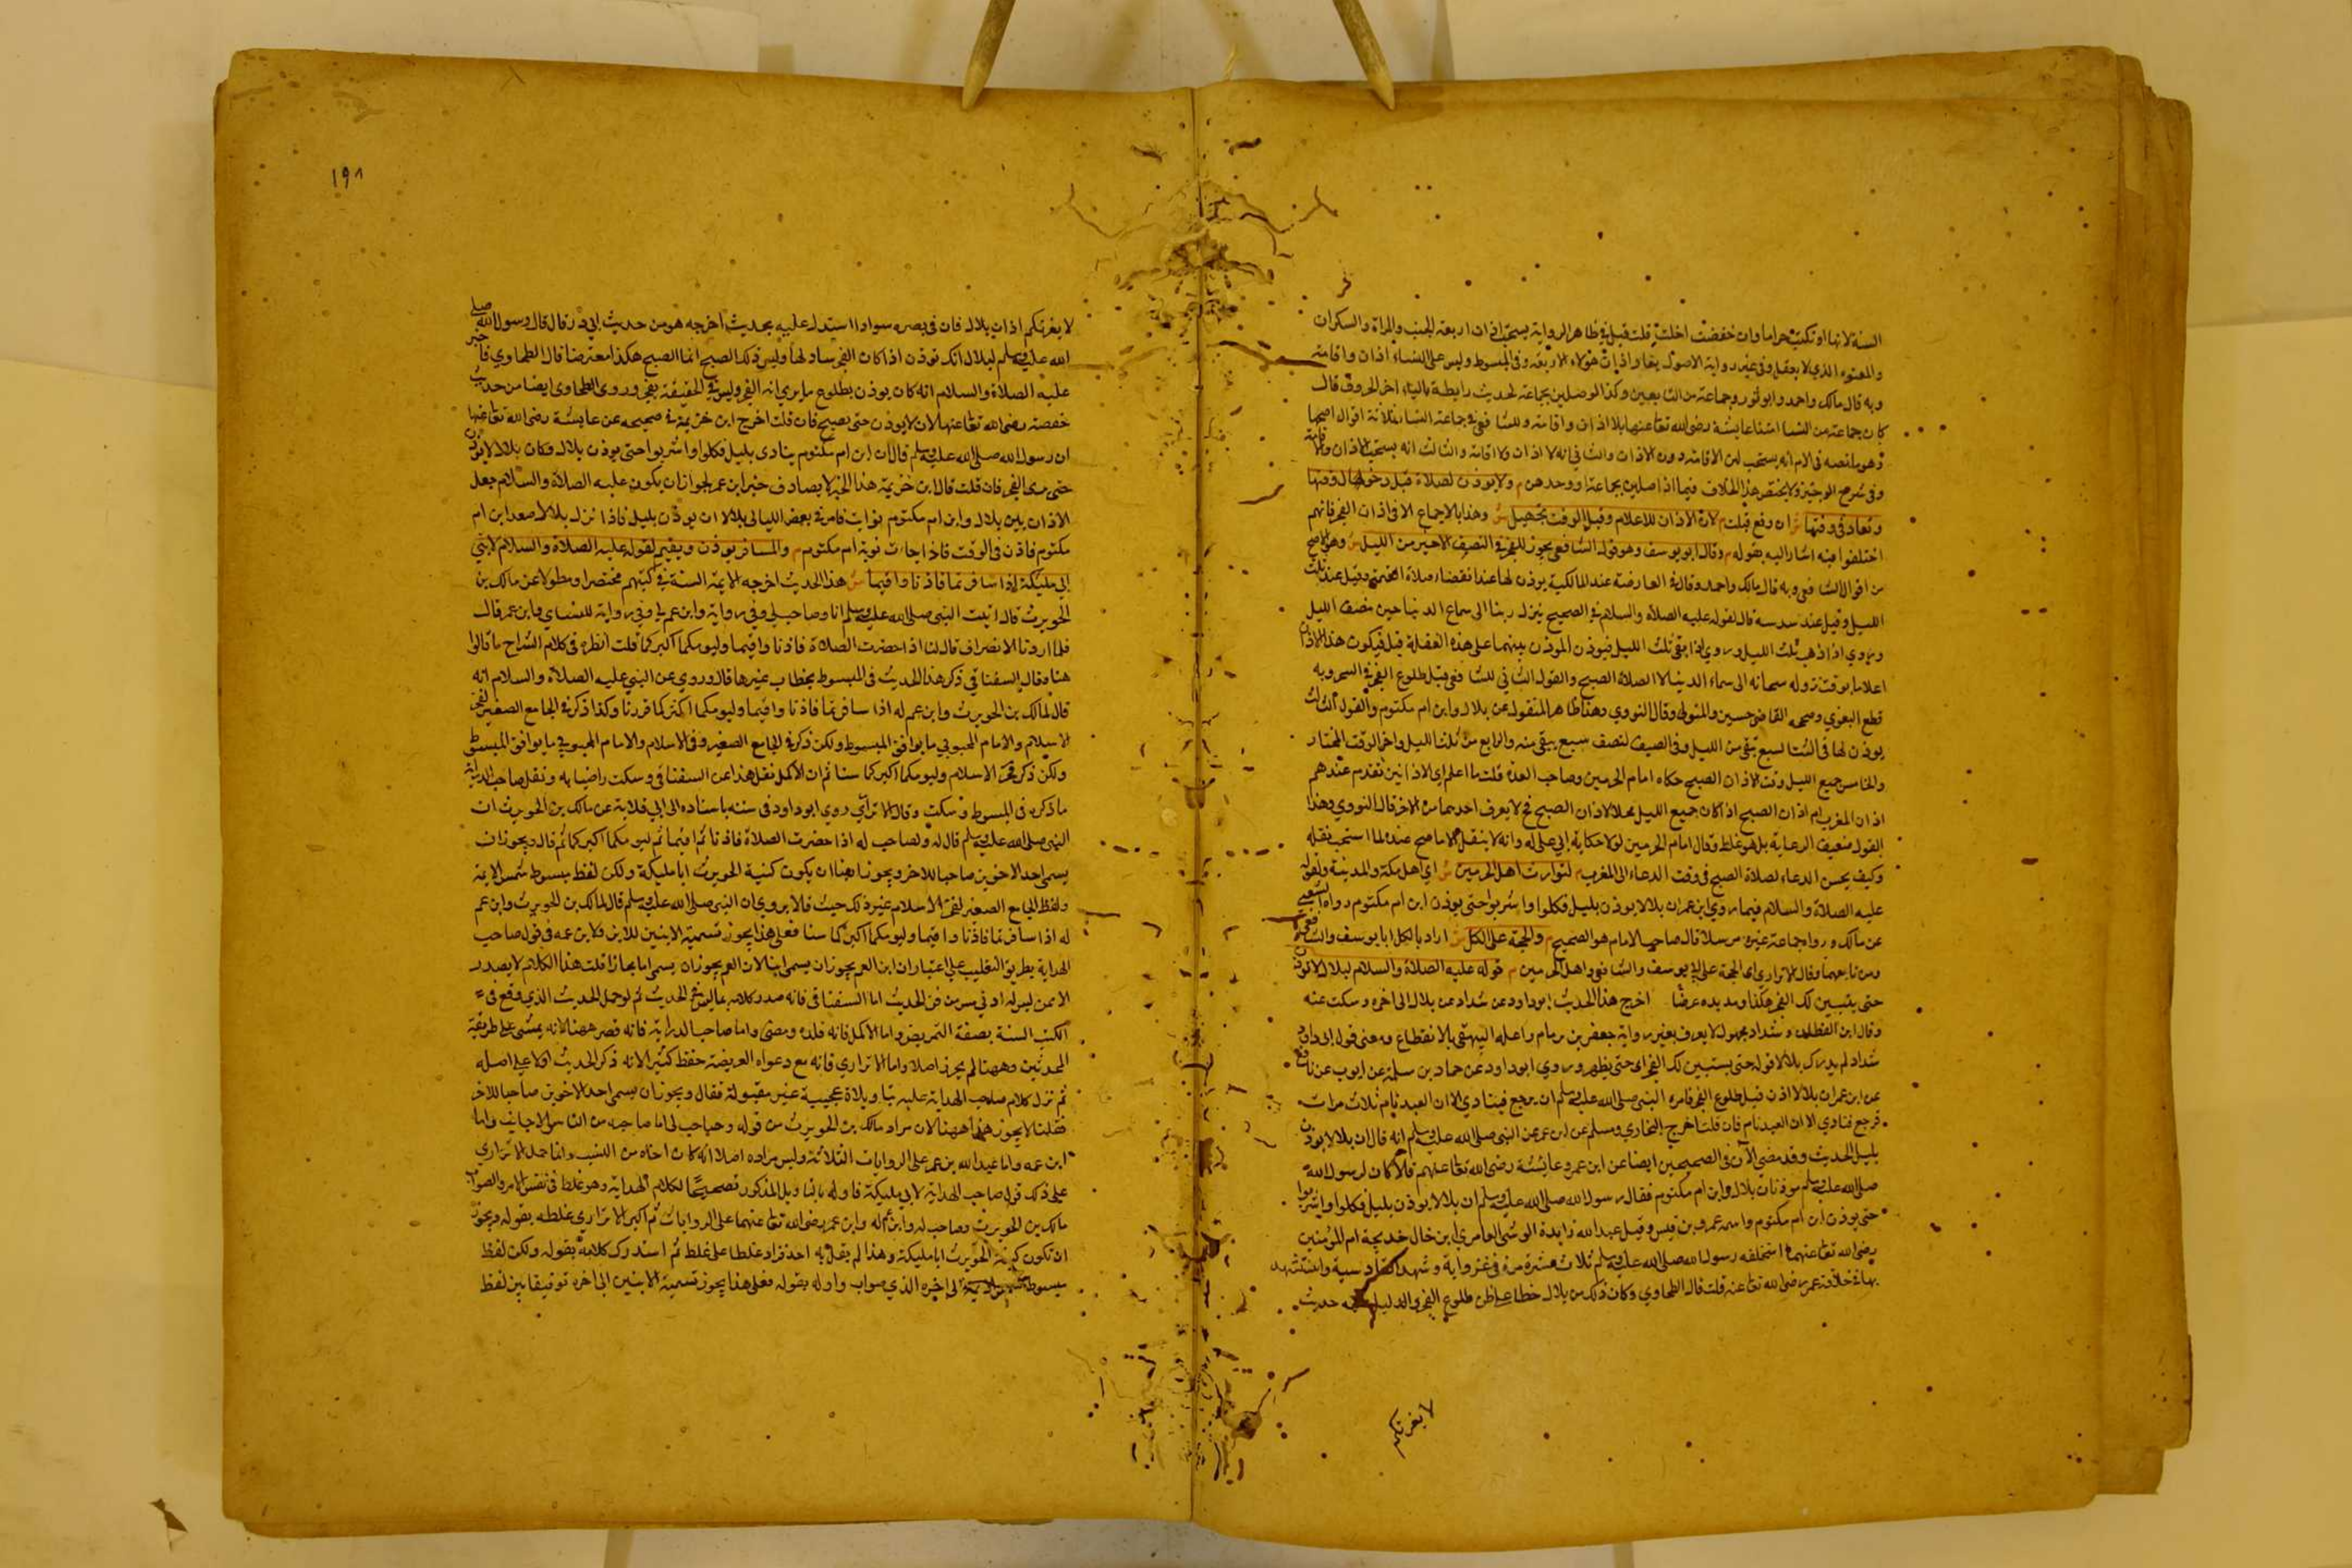 السنة لانها او تكبت حراما وان خفضت اخلت قلت قيل في ظاهر الرواية يستحب اذان اربعة الجنب والمراة والسكران
والمعتوه الذي لا يعقل وفي غير رواية الاصول يعاد اذان هؤلاء الاربعة وفي المبسوط وليس على النساء اذان واقامة
وبه قال مالك واحمد وابو ثور وجماعة من التابعين وكذا لو صلين بجماعة لحديث رابطة بالياء اخر الحروف قال
كان جماعة من النساء امتنا عايشة رضى الله تعا عنها بلا اذان واقامة وللشافعي في جماعة النساء ثلاثة اقوال اصحها
وهو ما نصه في الام انه يستحب لهن الاقامة دون الاذان والثاني انه لا اذان ولا اقامة والثالث انه يستحب الاذان والاقامة
وفي شرح الوجيز ولا يختص هذا الخلاف فيما اذا صلين بجماعة او وحدهن م ولا يوذن لصلاة قبل دخول وقتها
وتعاد في وقتها ش ان وقع قبلت م لان الاذان للاعلام وقبل الوقت تجهيل ش وهذا بالاجماع الا في اذان الفجر فانهم
اختلفوا فيه اشار اليه بقوله م وقال ابو يوسف وهو قول الشافعي يجوز للفجر في النصف الاخير من الليل ش وهو الاصح
من اقوال الشافعي وبه قال مالك واحمد وقال في العارضة عند المالكية يوذن لها عند انقضا صلاة العتمة وقيل عند ثلث
الليل وقيل عند سدسه قال لقوله عليه الصلاة والسلام في الصحيح ينزل ربنا الى سماء الدنيا حين نصف الليل
وروي اذا ذهب ثلث الليل وروي اذا بقي ثلث الليل فيوذن الموذن بينهما على هذه الغفلة قيل فيكون هذا الاذان
اعلاما بوقت نزوله سبحانه الى سماء الدنيا لا لصلاة الصبح والقول الثاني للشافعي قبل طلوع الفجر في السحر وبه
قطع البغوي وصححه القاضي حسين والمتولي وقال النووي وهذا ظاهر المنقول عن بلال وابن ام مكتوم والقول الثالث
يوذن لها في الشتا لسبع بقي من الليل وفي الصيف لنصف سبع يبقى منه والرابع من ثلث الليل واخر الوقت المختار
والخامس جميع الليل وقت لاذان الصبح حكاه امام الحرمين وصاحب العدة قلت ما اعلم اي الاذانين تقدم عندهم
اذان المغرب ام اذان الصبح اذ اكان جميع الليل محلا لاذان الصبح فح لا يعرف احدهما من الاخر قال النووي وهذا
القول ضعيف الرعاية بل هو غلط وقال امام الحرمين لولا حكاية ابي علي له وانه لا ينقل الا ما صح عنده لما استحب نقله
وكيف يحسن الدعاء لصلاة الصبح في وقت الدعاء الى المغرب م لتوارث اهل الحرمين ش اي اهل مكة والمدينة ولقوله
عليه الصلاة والسلام فيما روي ابن عمر ان بلالا يوذن بليل فكلوا واشربوا حتى يوذن ابن ام مكتوم رواه
عن مالك ورواه جماعة غيره مرسلا قال صاحب الامام هو الصحيح م والحجة على الكل ش اراد بالكل ابا يوسف والشافعي
ومن تابعهما وقال الاتراري اى الحجة على ابي يوسف والشافعي واهل الحرمين م قوله عليه الصلاة والسلام لبلال لا توذن
حتى يتبين لك الفجر هكذا ومد يده عرضا اخرج هذا الحديث ابو داود عن شداد عن بلال الى اخره وسكت عنه
وقال ابن القطان وشداد مجهول لا يعرف بغير رواية جعفر بن برقان واعله البيهقي بالانقطاع ومعنى قول ابي داود
شداد لم يدرك بلالا قوله حتى يستبين لك الفجر اى حتى يظهر وروي ابو داود عن حماد بن سلمة عن ايوب عن نافع
عن ابن عمر ان بلالا اذن قبل طلوع الفجر فامره النبى صلى الله عليه وسلم ان يرجع فينادي الا ان العبد نام ثلاث مرات
فرجع فنادي الا ان العبد نام فان قلت اخرج البخاري ومسلم عن ابن عمر عن النبى صلى الله عليه وسلم انه قال ان بلالا يوذن
بليل الحديث وقد مضى الآن في الصحيحين ايضا عن ابن عمر وعايشة رضى الله تعا عنهم قالا كان لرسول الله
صلى الله عليه وسلم موذنان بلال وابن ام مكتوم فقال رسول الله صلى الله عليه وسلم ان بلالا يوذن بليل فكلوا واشربوا
حتى يوذن ابن ام مكتوم واسمه عمرو بن قيس وقيل عبد الله زايدة القرشى العامري ابن خال خديجة ام المؤمنين
رضى الله تعا عنهما استخلفه رسول الله صلى الله عليه وسلم ثلاث عشرة مرة في غزواته وشهد القادسية واستشهد
بها في خلافة عمر رضى الله تعا عنه قلت قال الطحاوي وكان ذلك من بلال خطا على ظن طلوع الفجر والدليل عليه حديث
لا يغرنكم
١٩٨
لا يغرنكم اذان بلال فان في بصره سوادا استدل عليه بحديث اخرجه هو من حديث ابي ذر قال قال رسول الله صلى
الله عليه وسلم لبلال انك توذن اذا كان الفجر ساطعا وليس ذلك الصبح انما الصبح هكذا معترضا قال الطحاوي فاخبر
عليه الصلاة والسلام انه كان يوذن بطلوع ما يري انه الفجر وليس في الحقيقة بفجر وروى الطحاوى ايضا من حديث
حفصة رضى الله تعا عنها لان لا يوذن حتى يصبح فان قلت اخرج ابن خزيمة في صحيحه عن عايشة رضى الله تعا عنها
ان رسول الله صلى الله عليه وسلم قال ان ابن ام مكتوم ينادى بليل فكلوا واشربوا حتى يوذن بلال وكان بلال لا يوذن
حتى يرى الفجر فان قلت قال ابن خزيمة هذا الخبر لا يصادف خبر ابن عمر لجواز ان يكون عليه الصلاة والسلام جعل
الاذان بين بلال وابن ام مكتوم نوايب فامر في بعض الليالي بلالا ان يوذن بليل فاذا نزل بلال صعد ابن ام
مكتوم فاذن في الوقت فاذا جاءت نوبة ام مكتوم م والمسافر يوذن ويقيم لقوله عليه الصلاة والسلام لابني
ابي مليكة اذا سافرتما فاذنا واقيما ش هذا الحديث اخرجه الايمة الستة في كتبهم مختصرا ومطولا عن مالك بن
الحويرث قال اتيت النبى صلى الله عليه وسلم انا وصاحب لي وفي رواية وابن عم لي وفي رواية للنساي وابن عمر قال
فلما اردنا الانصراف قال لنا اذا حضرت الصلاة فاذنا واقيما وليومكما اكبركما قلت انظره في كلام الشراح ما قالوا
هنا وقال السغناقي ذكر هذا الحديث في المبسوط بخطاب غيرها قال وروي عن النبي عليه الصلاة والسلام انه
قال لمالك بن الحويرث وابن عم له اذا سافرتما فاذنا واقيما وليومكما اكثركما قرانا وكذا ذكر في الجامع الصغير لفخر
الاسلام والامام المحبوبي ما يوافق المبسوط ولكن ذكر في الجامع الصغير وفخر الاسلام والامام المحبوبي ما يوافق المبسوط
ولكن ذكر فخر الاسلام وليومكما اكبركما سنا ثم ان الاكمل نقل هذا عن السغناقي وسكت راضيا به ونقل صاحب الدراية
ما ذكره في المبسوط وسكت وقال الاتراري روي ابو داود في سننه باسناده الى ابي قلابة عن مالك بن الحويرث ان
النبى صلى الله عليه وسلم قال له ولصاحب له اذا حضرت الصلاة فاذنا ثم اقيما ثم ليومكما اكبركما ثم قال ويجوز ان
يسمى احد الاخوين صاحبا للاخر ويجوز ايضا ان يكون كنية الحويرث ابا مليكة ولكن لفظ مبسوط شمس الايمة
ولفظ الجامع الصغير لفخر الاسلام غير ذلك حيث قالا يروي ان النبى صلى الله عليه وسلم قال لمالك بن الحويرث وابن عم
له اذا سافرتما فاذنا واقيما وليومكما اكبركما سنا فعلى هذا يجوز تسمية الابنين للابن ولابن عمه في قول صاحب
الهداية بطريق التغليب على اعتبار ان ابن العم يجوز ان يسمى ابنا لان العم يجوز ان يسمى ابا مجازا قلت هذا الكلام لا يصدر
الا ممن ليس له ادنى مس من فن الحديث اما السغناقي فانه صدر كلامه بما ليس في الحديث ثم لوحمل الحديث الذي وقع في
الكتب الستة بصفة التمريض واما الاكمل فانه قلده ومضى واما صاحب الدراية فانه قصر ههنا لانه يمشى على طريقة
المحدثين وههنا لم يحرر اصلا واما الاتراري فانه مع دعواه العريضة حفظ كثير لانه ذكر الحديث اولا على اصله
ثم نزل كلام صاحب الهداية عليه بتاويلات عجيبة غير مقبولة فقال ويجوز ان يسمى احد الاخوين صاحبا للاخر
فقلنا لا يجوز هذا ههنا لان مراد مالك بن الحويرث من قوله وصاحب لي اما صاحبه من الناس الاجانب واما
ابن عمه واما عبد الله بن عمر على الروايات الثلاثة وليس مراده اصلا انه كان اخاه من النسب وانما حمل الاتراري
على ذلك قول صاحب الهداية لابي مليكة فاوله بالتاويل المذكور تصحيحا لكلام الهداية وهو غلط في نفس الامر والصواب
مالك بن الحويرث وصاحب له وابن عم له وابن عمر رضى الله تعا عنهما على الروايات ثم اكبر الاتراري غلطه بقوله ويجوز
ان تكون كنية الحويرث ابا مليكة وهذا لم يقل به احد فزاد غلطا على غلط ثم استدرك كلامه بقوله ولكن لفظ
مبسوط شمس الايمة الى اخره الذي صواب واوله بقوله فعلى هذا يجوز تسمية الابنين الى اخره توفيقا بين لفظ